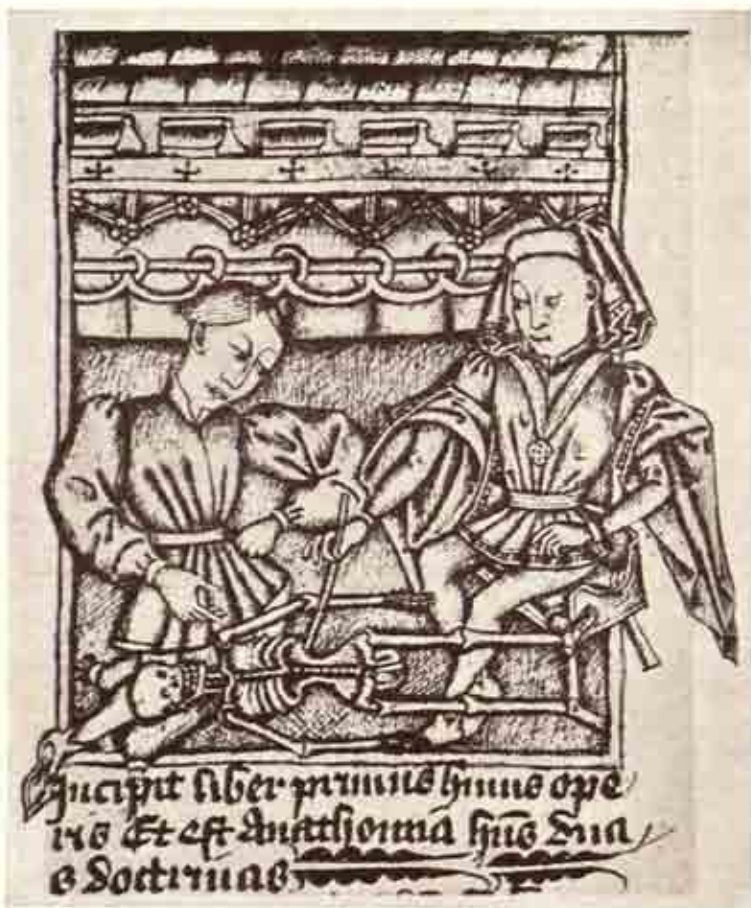 Incipit liber primus huius ope
ris Et est Anathomia hn̄s dua
s doctrinas